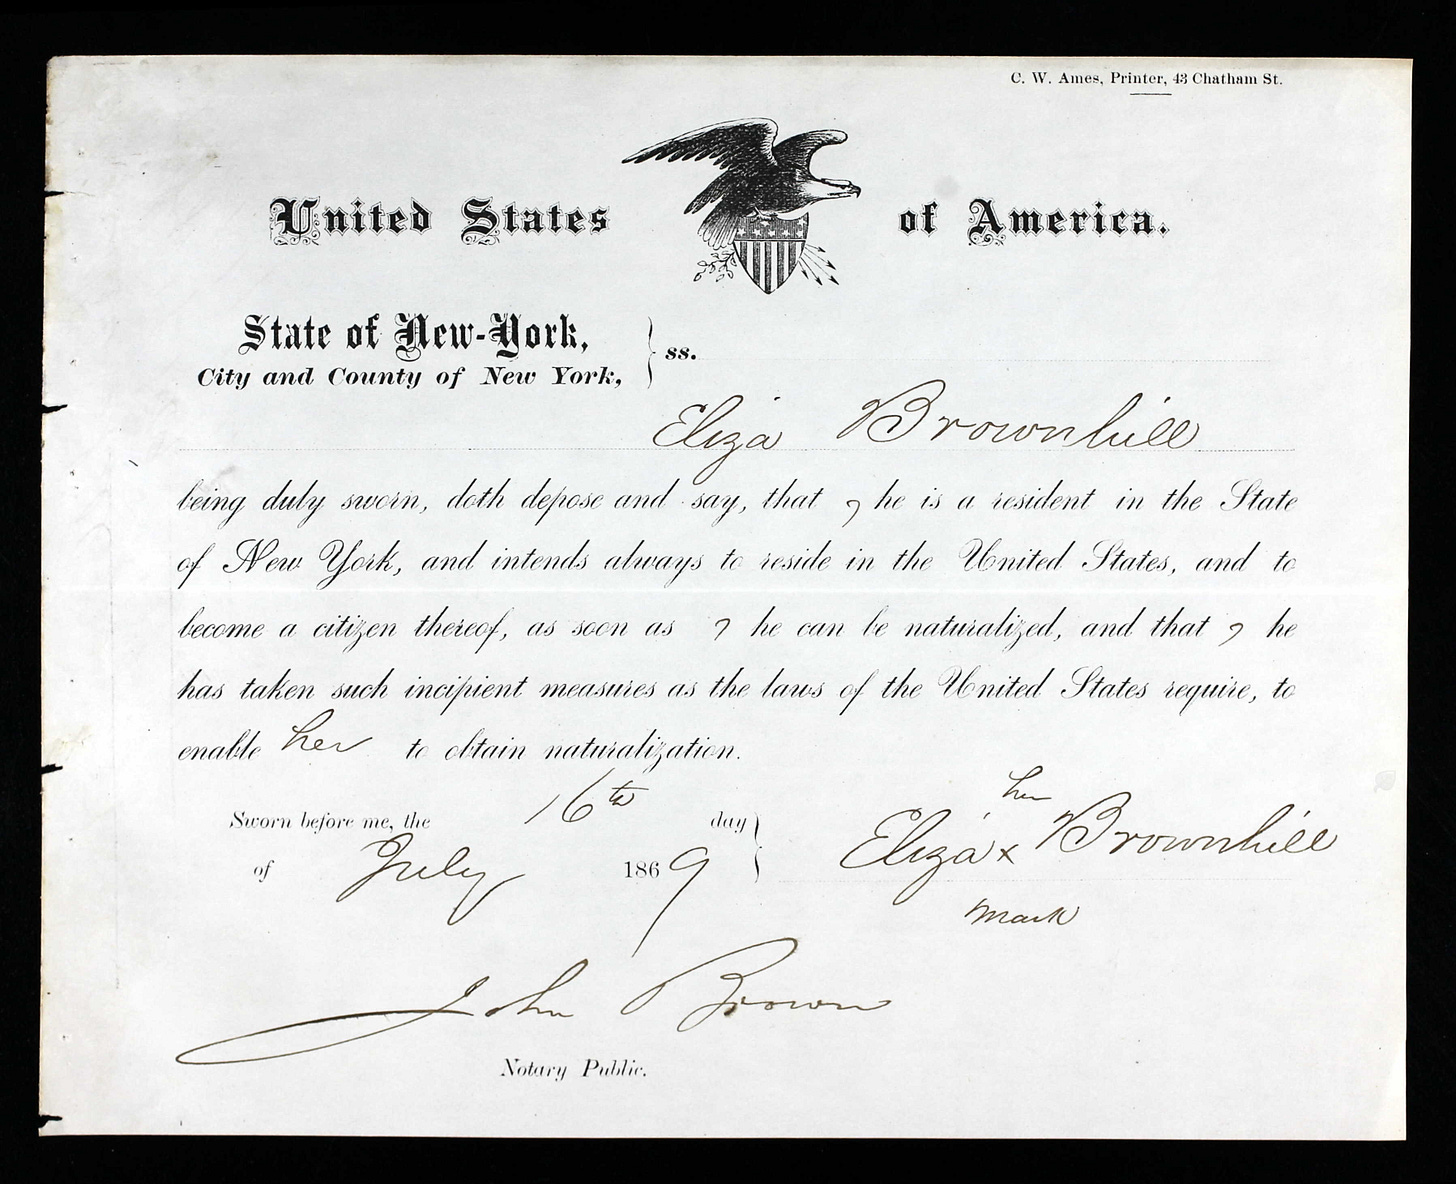 C. W. Ames, Printer, 43 Chatham St.
United States of America.
State of New-York,
City and County of New York, } ss.
Eliza Brownhill
being duly sworn, doth depose and say, that s he is a resident in the State
of New York, and intends always to reside in the United States, and to
become a citizen thereof, as soon as s he can be naturalized, and that s he
has taken such incipient measures as the laws of the United States require, to
enable her to obtain naturalization.
Sworn before me, the 16th day
of July 1869 }
her
Eliza x Brownhill
mark
John Brown
Notary Public.